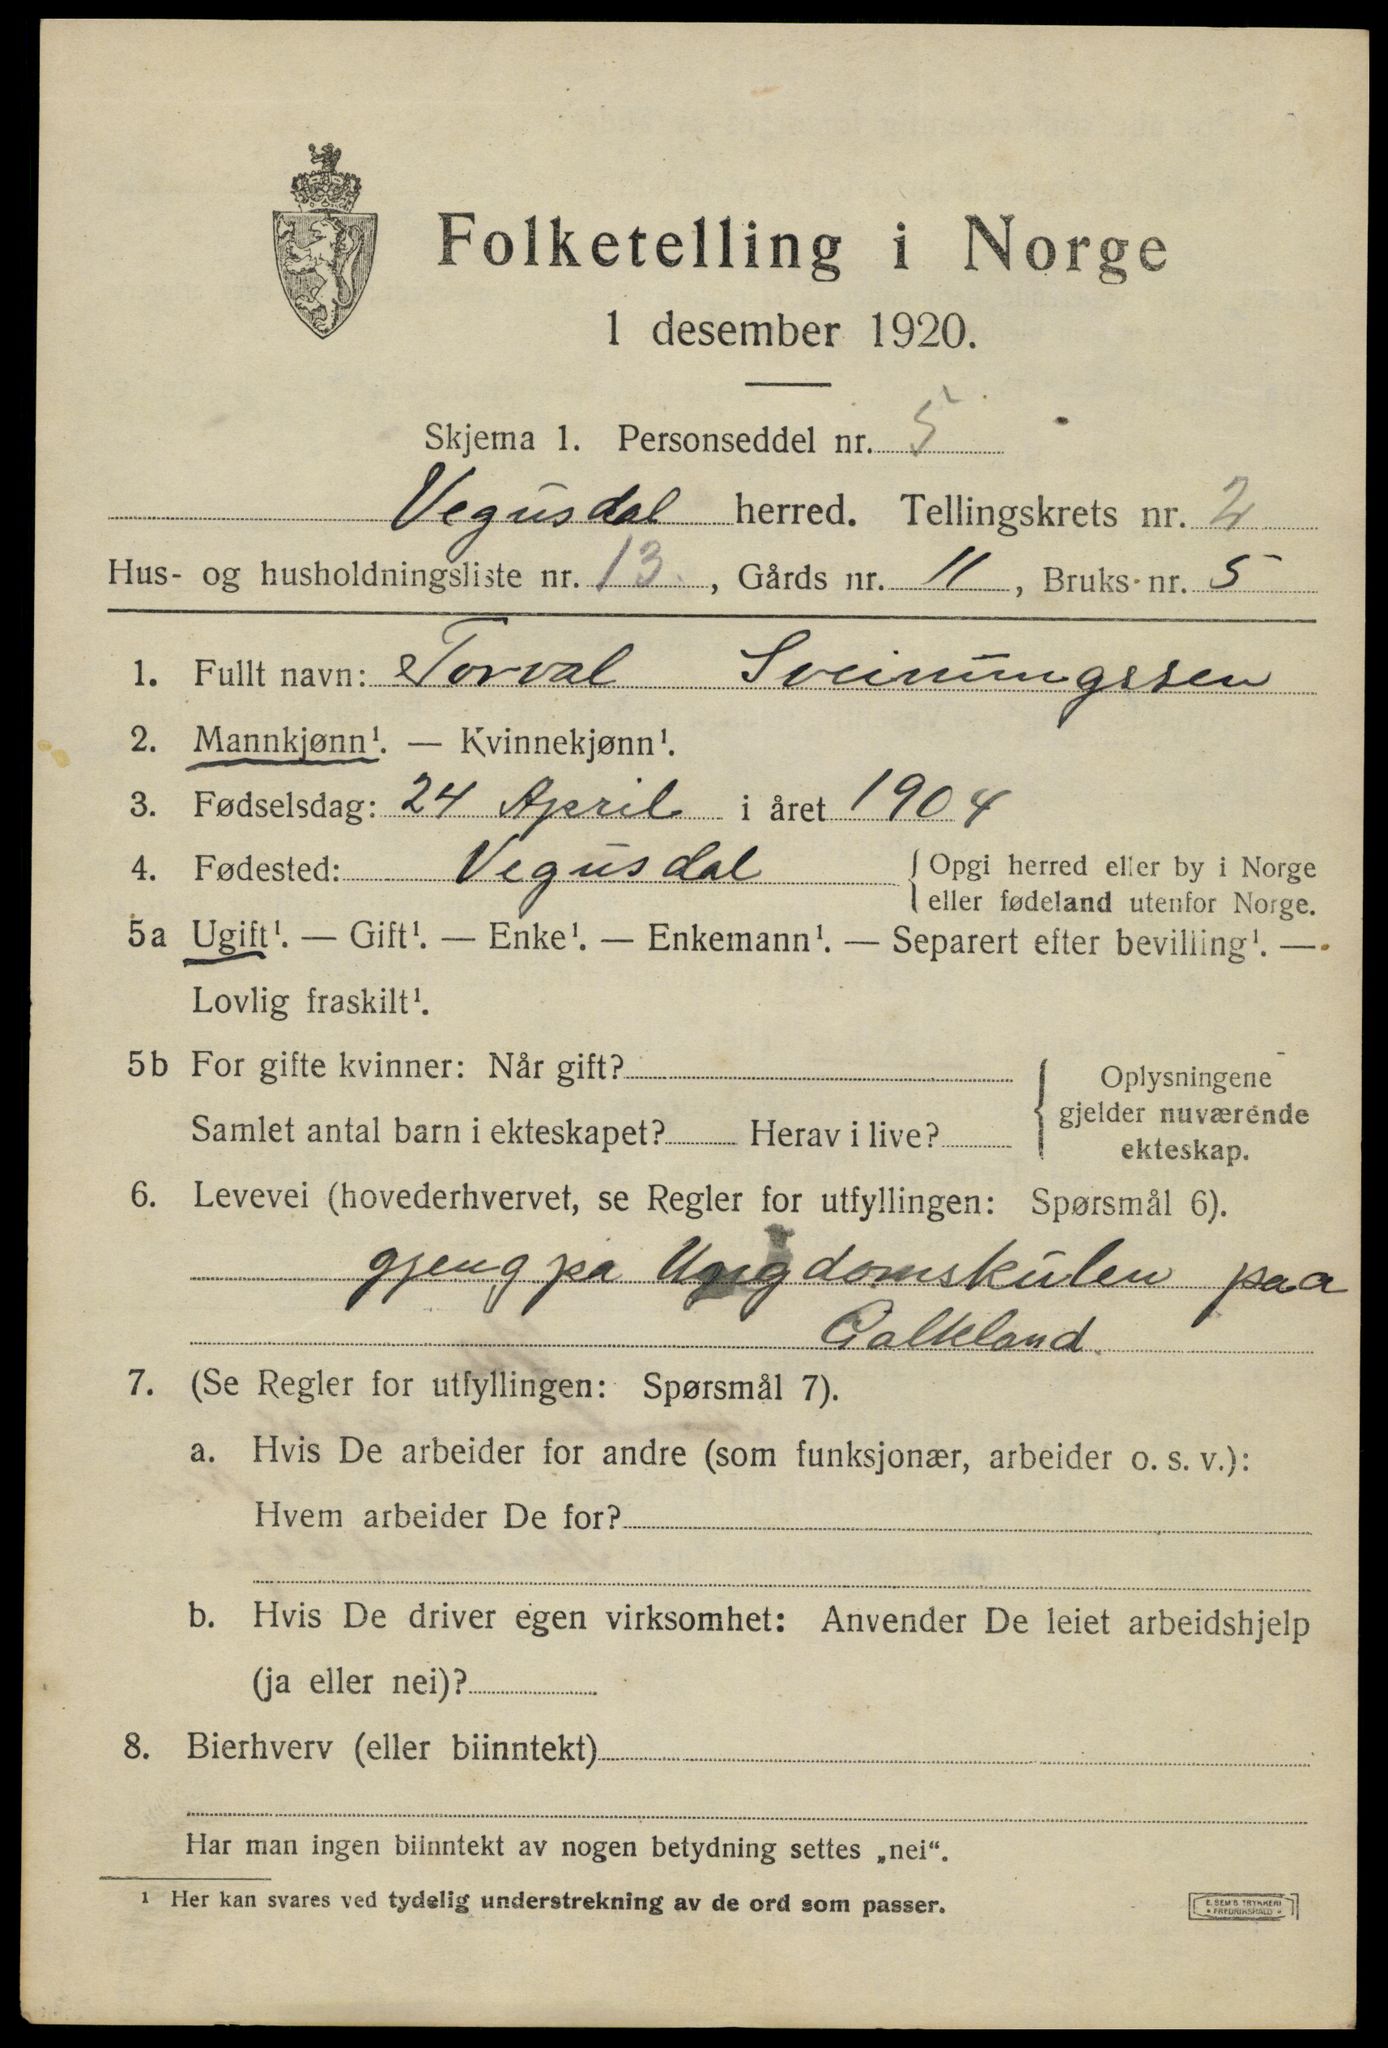 Folketelling i Norge
1 desember 1920.
Skjema 1. Personseddel nr. 5
Vegusdal herred. Tellingskrets nr. 2
Hus- og husholdningsliste nr. 13, Gårds nr. 11, Bruks nr. 5
1. Fullt navn: Torval Sveinungssen
2. Mannkjønn¹. — Kvinnekjønn¹.
3. Fødselsdag: 24 April i året 1904
4. Fødested: Vegusdal { Opgi herred eller by i Norge
eller fødeland utenfor Norge.
5a Ugift¹. — Gift¹. — Enke¹. — Enkemann¹. — Separert efter bevilling¹. —
Lovlig fraskilt¹.
5b For gifte kvinner: Når gift?
Samlet antal barn i ekteskapet? Herav i live?
Oplysningene
gjelder nuværende
ekteskap.
6. Levevei (hovederhvervet, se Regler for utfyllingen: Spørsmål 6).
gjeng pa Ungdomskulen paa
Galteland
7. (Se Regler for utfyllingen: Spørsmål 7).
a. Hvis De arbeider for andre (som funksjonær, arbeider o. s. v.):
Hvem arbeider De for?
b. Hvis De driver egen virksomhet: Anvender De leiet arbeidshjelp
(ja eller nei)?
8. Bierhverv (eller biinntekt)
Har man ingen biinntekt av nogen betydning settes „nei“.
¹ Her kan svares ved tydelig understrekning av de ord som passer.
E. SEM'S TRYKKERI
• FREDRIKSHALD •